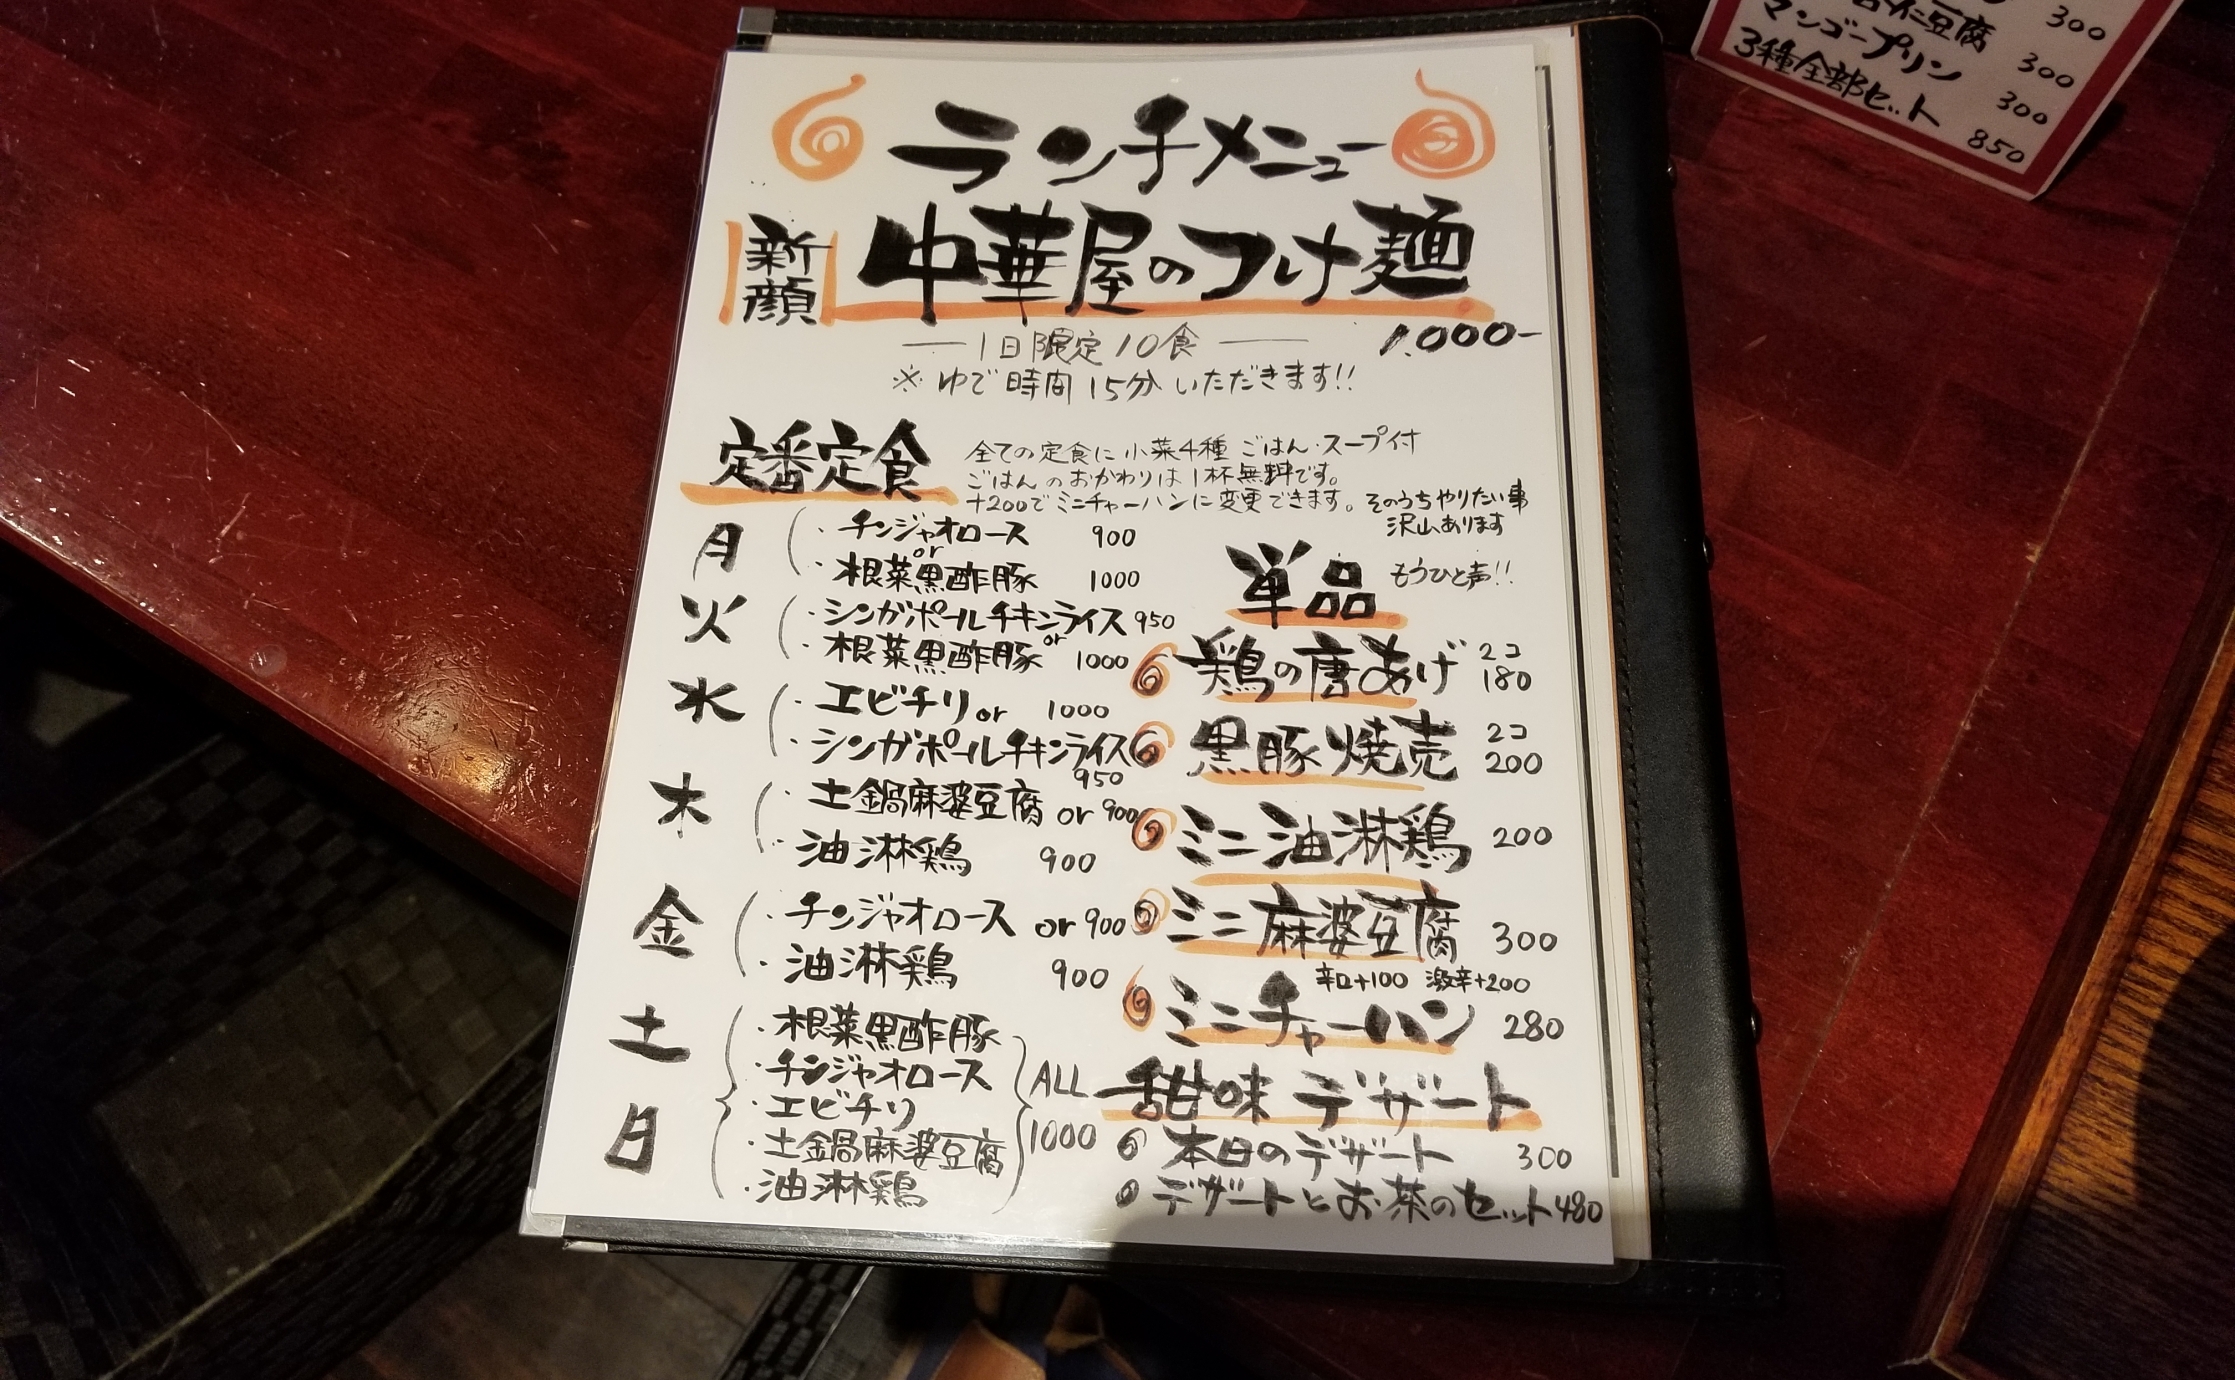 ランチメニュー
新顔
中華屋のつけ麺
1.000-
1日限定10食
※ ゆで時間15分いただきます!!
定番定食
全ての定食に小菜4種 ごはん・スープ付
ごはんのおかわりは1杯無料です。
+200でミニチャーハンに変更できます。
そのうちやりたい事
沢山あります
月
・チンジャオロース 900
or
・根菜黒酢豚 1000
火
・シンガポールチキンライス 950
or
・根菜黒酢豚 1000
水
・エビチリ or 1000
・シンガポールチキンライス
950
木
・土鍋麻婆豆腐 or 900
・油淋鶏 900
金
・チンジャオロース or 900
・油淋鶏 900
土
日
・根菜黒酢豚
・チンジャオロース
・エビチリ
・土鍋麻婆豆腐
・油淋鶏
ALL
1000
単品
もうひと声!!
鶏の唐あげ 2コ 180
黒豚焼売 2コ 200
ミニ油淋鶏 200
ミニ麻婆豆腐 300
辛口+100 激辛+200
ミニチャーハン 280
甜味 デザート
本日のデザート 300
デザートとお茶のセット 480
300
仁豆腐 300
マンゴープリン 300
3種全部セット 850